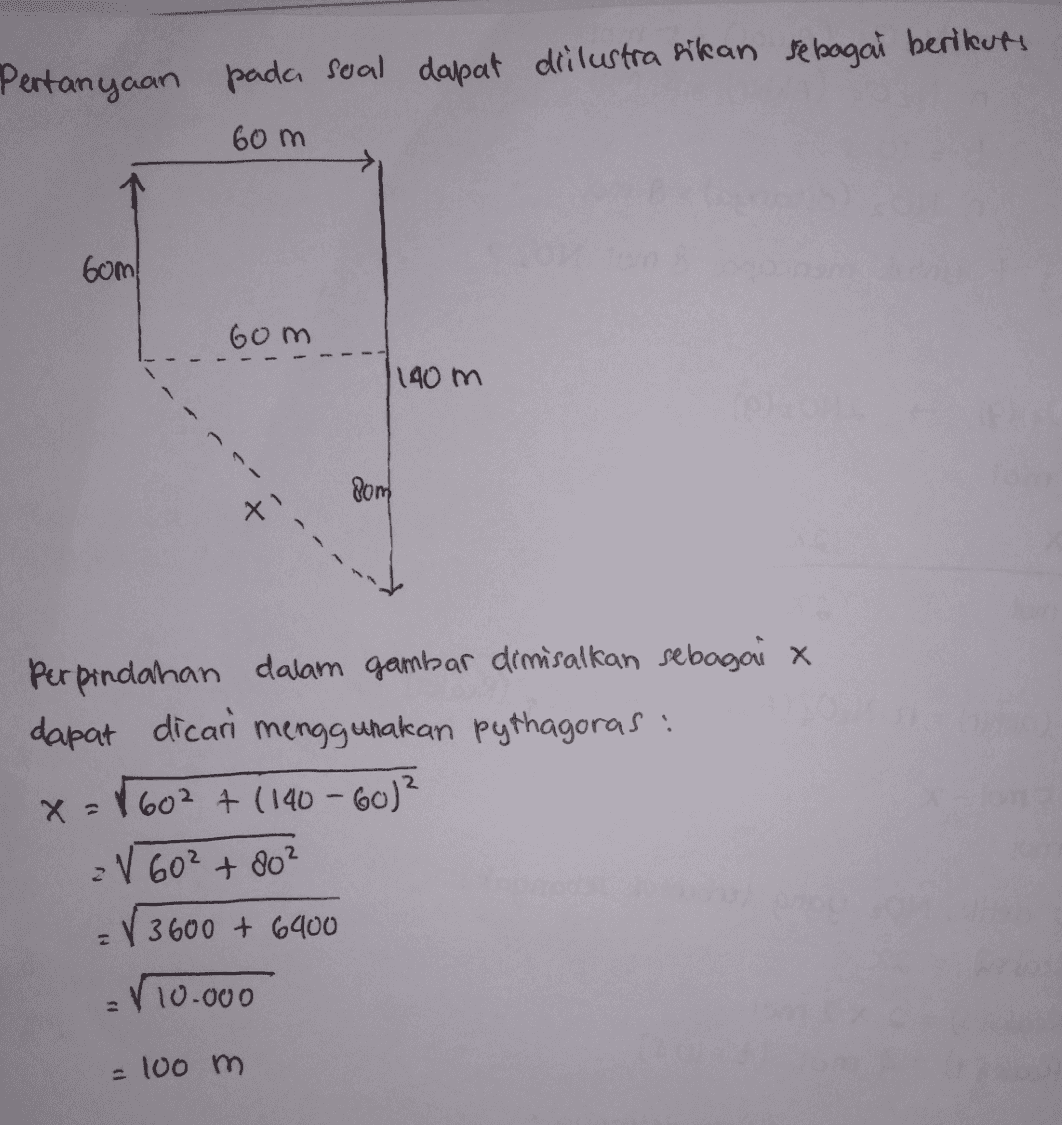 Pertanyaan pada soal dapat diilustrasikan sebagai berikut:
60 m
60m
60 m
140 m
80m
x
Perpindahan dalam gambar dimisalkan sebagai x
dapat dicari menggunakan pythagoras :
x = √60² + (140 - 60)²
= √60² + 80²
= √3600 + 6400
= √10.000
= 100 m